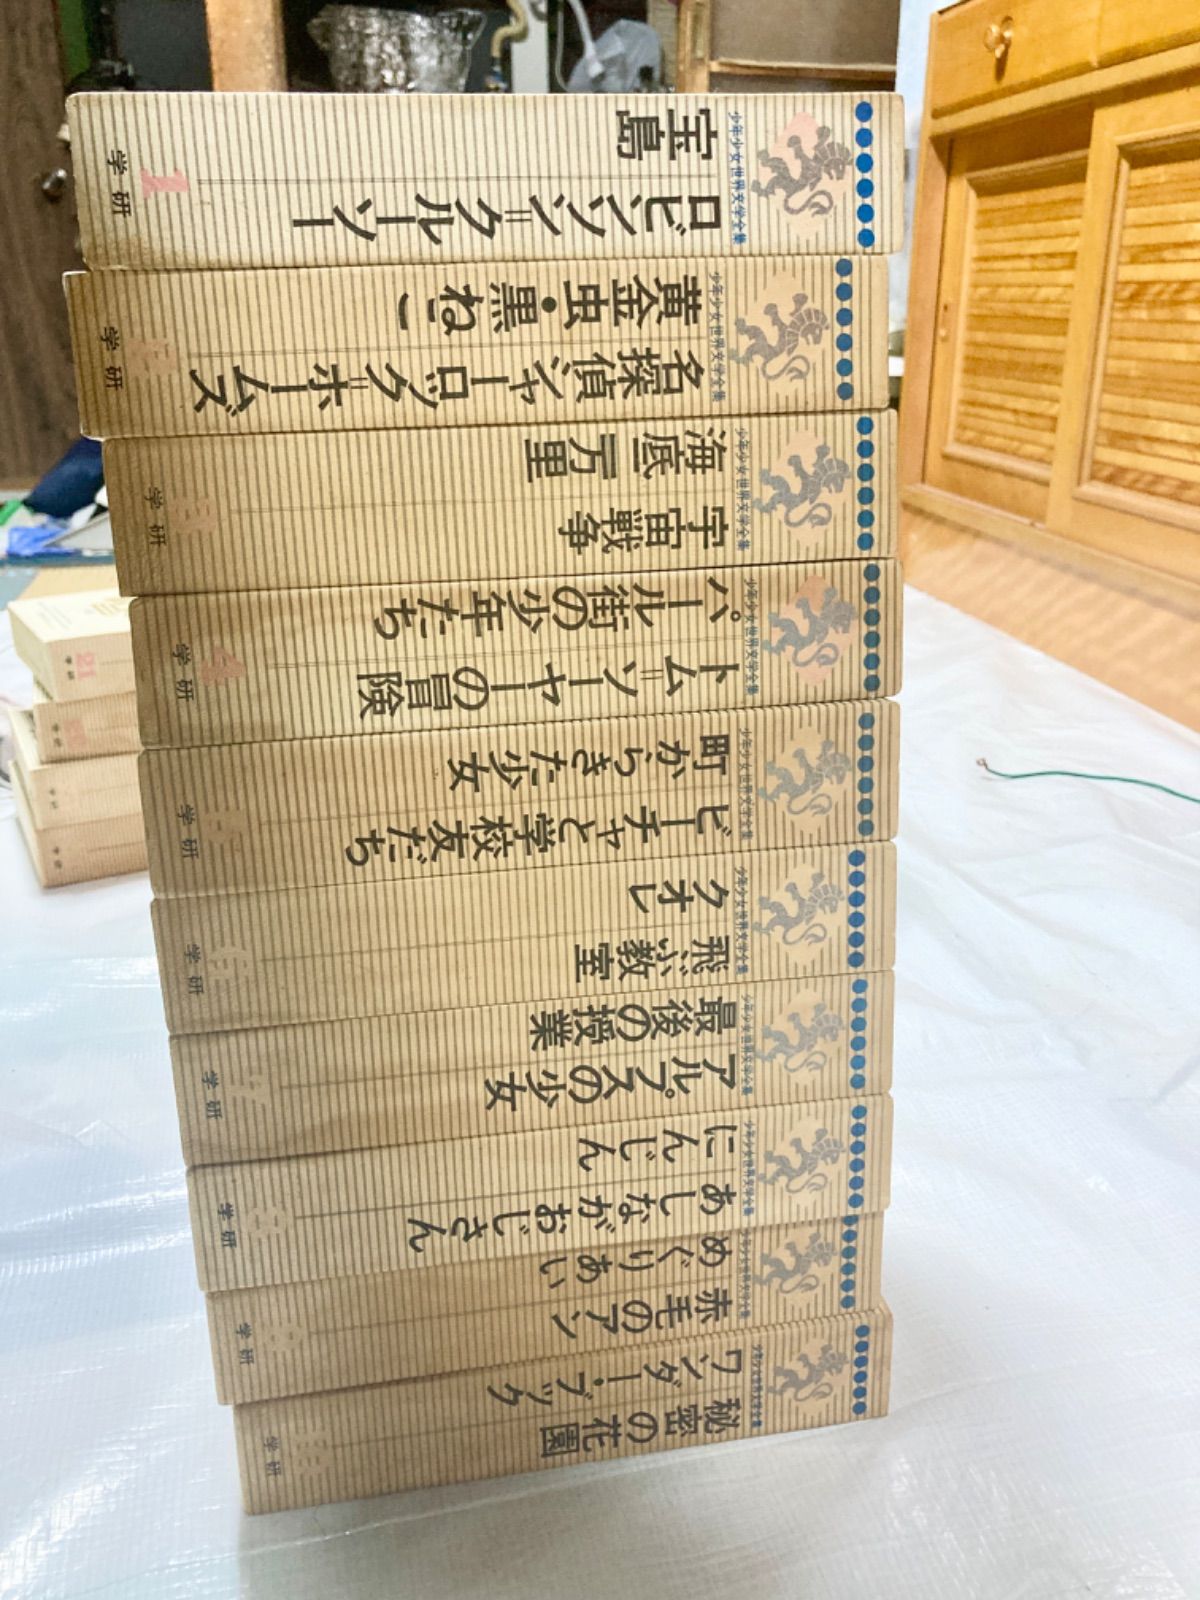 少年少女世界文学全集
宝島
ロビンソン=クルーソー
1
学研
少年少女世界文学全集
黄金虫・黒ねこ
名探偵シャーロック=ホームズ
学研
少年少女世界文学全集
海底二万里
宇宙戦争
3
学研
少年少女世界文学全集
パール街の少年たち
トム=ソーヤーの冒険
4
学研
少年少女世界文学全集
町からきた少女
ビーチャと学校友だち
学研
少年少女世界文学全集
クオレ
飛ぶ教室
学研
少年少女世界文学全集
最後の授業
アルプスの少女
学研
少年少女世界文学全集
にんじん
あしながおじさん
学研
少年少女世界文学全集
めぐりあい
赤毛のアン
学研
少年少女世界文学全集
ワンダー・ブック
秘密の花園
学研
21
学研
学研
学研
学研